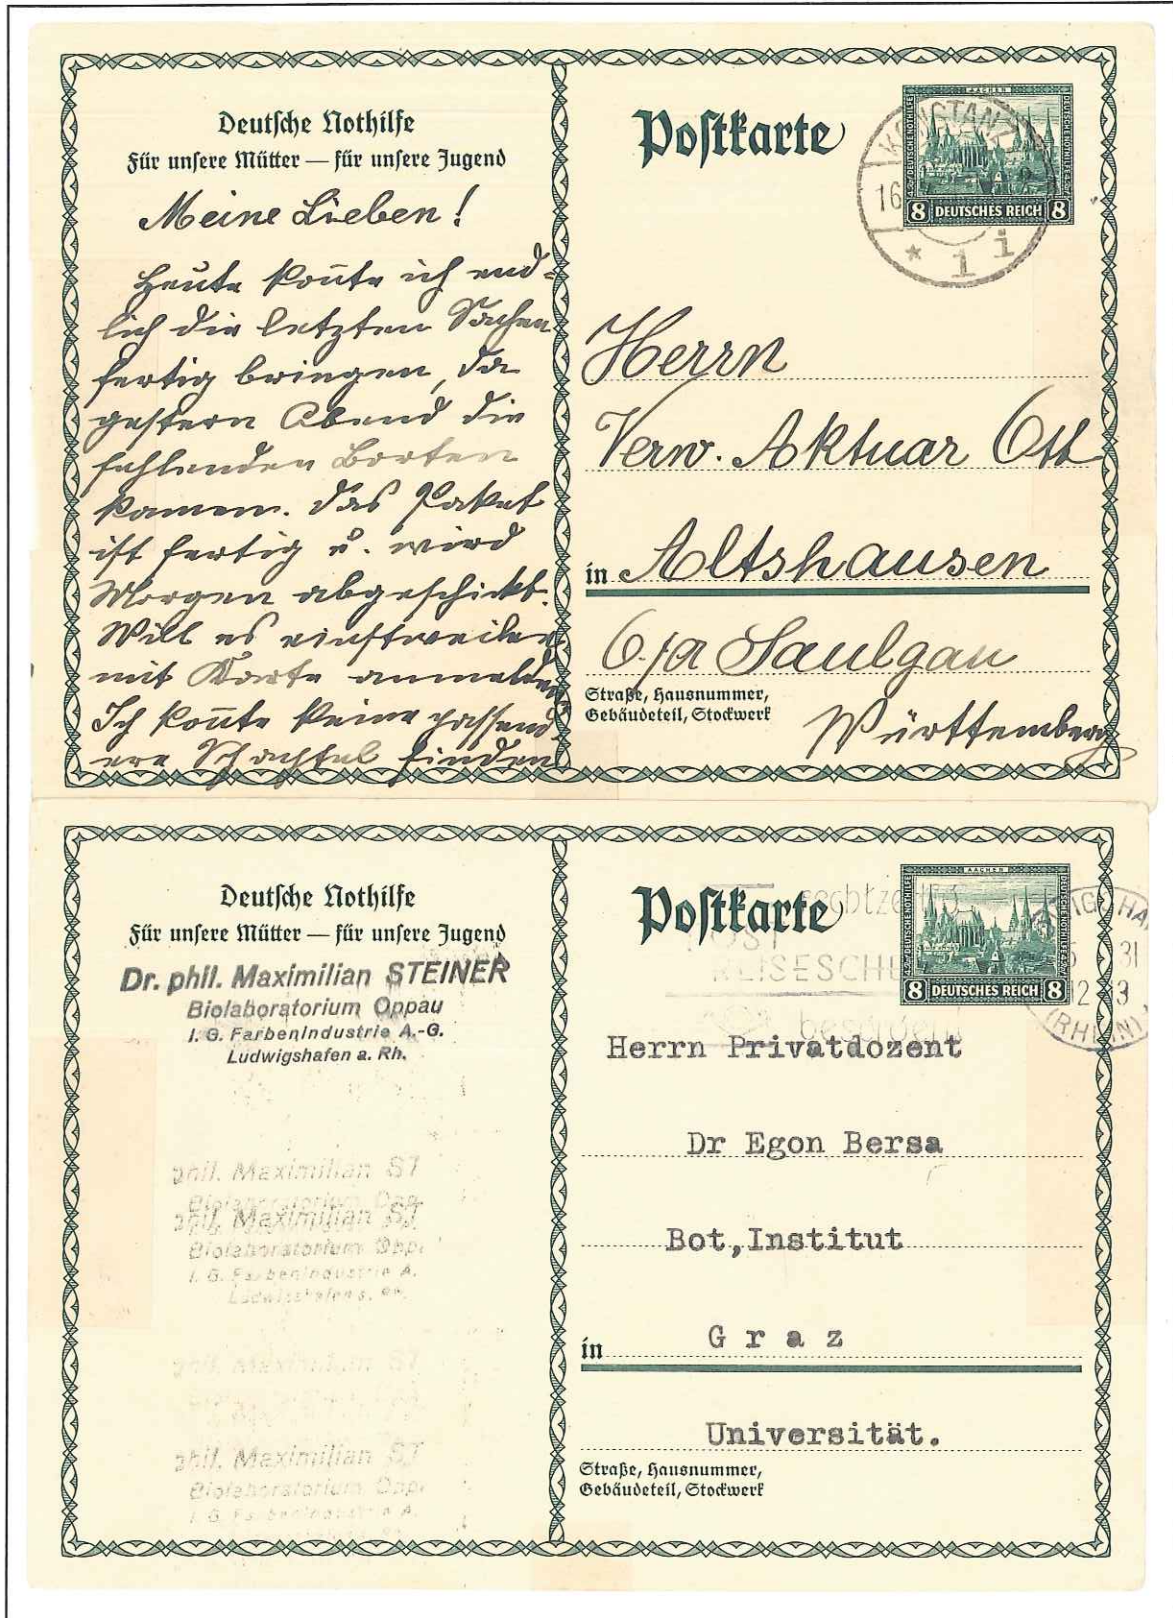 Deutsche Nothilfe
Für unsere Mütter — für unsere Jugend
Meine Lieben!
Heute konnte ich end-
lich die letzten Sachen
fertig bringen, da
gestern Abend die
fehlenden Borten
kamen. Das Paket
ist fertig u. wird
Morgen abgeschickt.
Will es einstweilen
mit Karte anmelden
Ich konnte keine passend
ere Schachtel finden
Postkarte
AACHEN
DEUTSCHE NOTHILFE
8 DEUTSCHES REICH 8
KONSTANZ
16
* 1 i
Herrn
Verw. Aktuar Ott
in Altshausen
O/A Saulgau
Straße, Hausnummer,
Gebäudeteil, Stockwerk
Württemberg
Deutsche Nothilfe
Für unsere Mütter — für unsere Jugend
Dr. phil. Maximilian STEINER
Biolaboratorium Oppau
I. G. Farbenindustrie A.-G.
Ludwigshafen a. Rh.
phil. Maximilian ST
Biolaboratorium Opp.
phil. Maximilian ST
Biolaboratorium Opp.
I. G. Farbenindustrie A.
Ludwigshafen a. Rh.
phil. Maximilian ST
phil. Maximilian ST
Biolaboratorium Opp.
I. G. Farbenindustrie A.
Postkarte
AACHEN
DEUTSCHE NOTHILFE
8 DEUTSCHES REICH 8
POST
REISESCH
(RHEIN)
31
Herrn Privatdozent
Dr Egon Bersa
Bot,Institut
in G r a z
Universität.
Straße, Hausnummer,
Gebäudeteil, Stockwerk